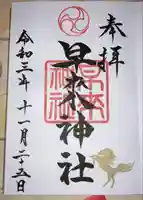 奉拝
早来神社
令和三年十一月二十五日